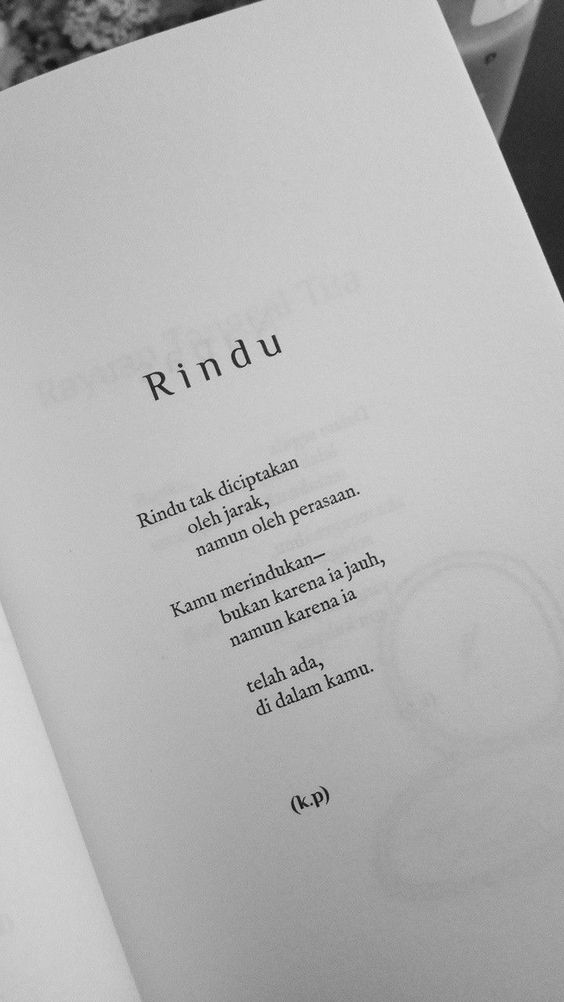 Rindu
Rindu tak diciptakan
oleh jarak,
namun oleh perasaan.
Kamu merindukan—
bukan karena ia jauh,
namun karena ia
telah ada,
di dalam kamu.
(k.p)